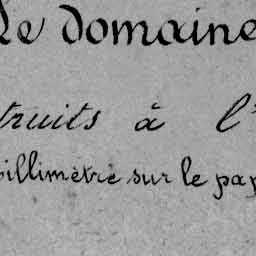 Le domaine
truits à l'
illimètre sur le pap